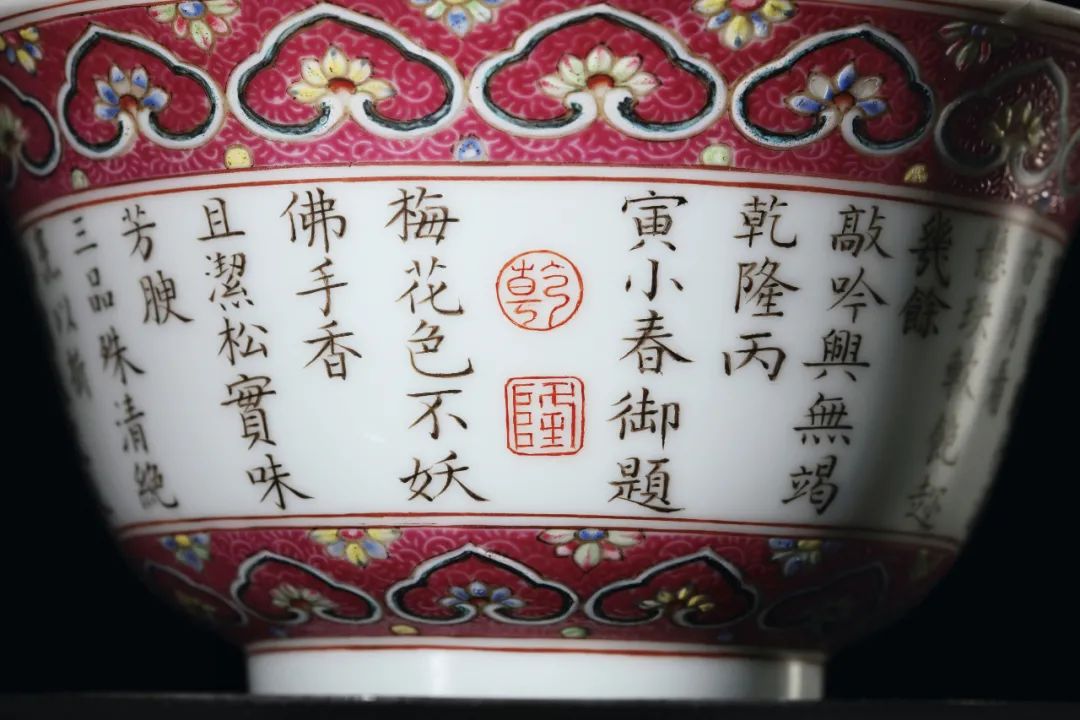 玦軟飽趁
幾餘
敲吟興無竭
乾隆丙
寅小春御題
乾
隆
梅花色不妖
佛手香
且潔松實味
芳腴
三品殊清絶
以折